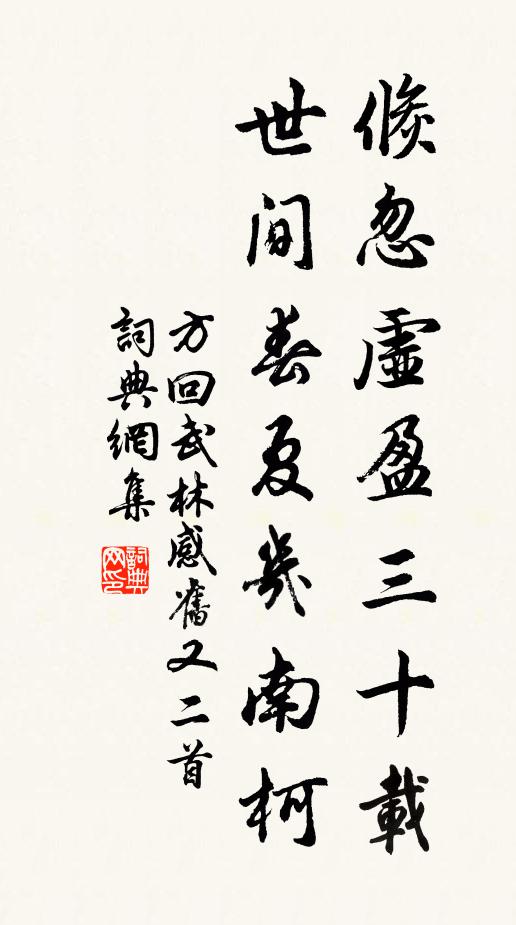 倏忽虛盈三十載
世間春夏幾南柯
方回武林感舊又二首
詞典網集
詞典网印